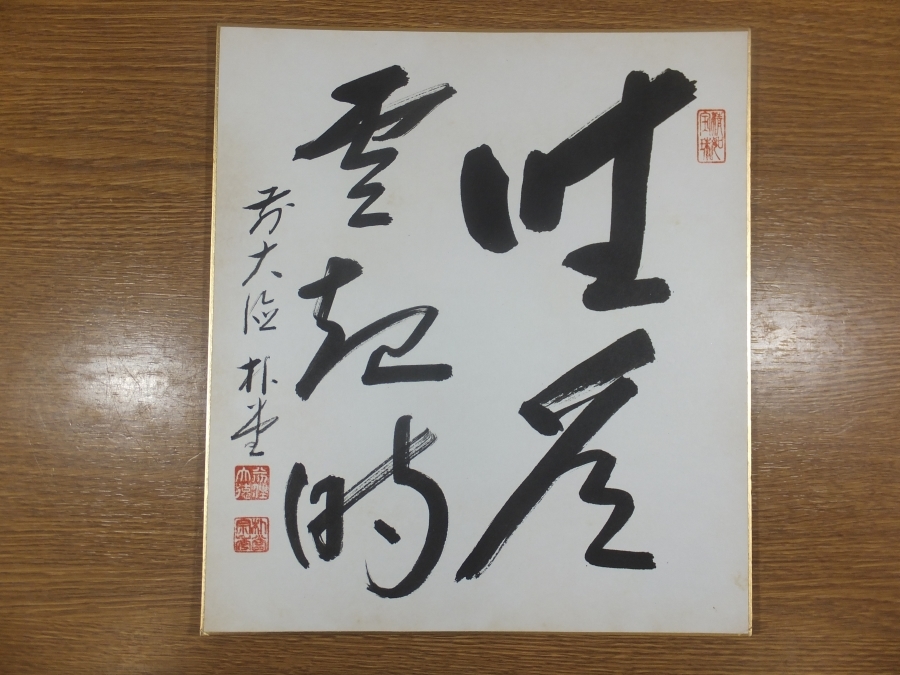 坐看
雲起時
前大徳 朴堂